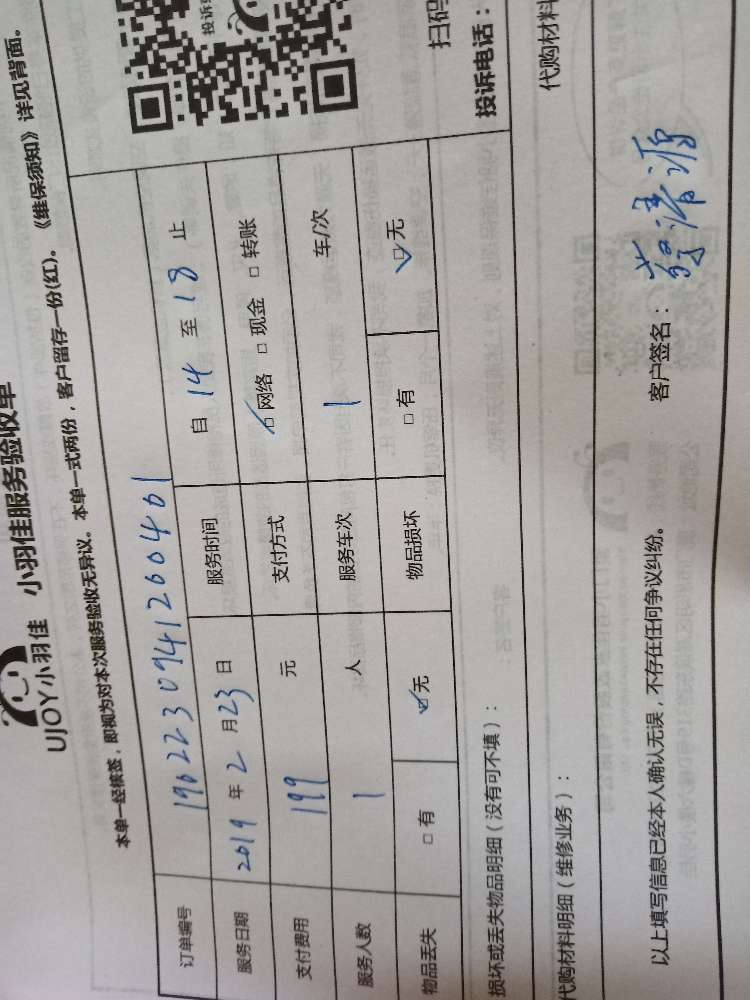 UJOY小羽佳 小羽佳服务验收单
本单一经核签，即视为对本次服务验收无异议。本单一式两份，客户留存一份(红)。《维保须知》详见背面。
订单编号 1902230941260401
服务日期 2019 年 2 月 23 日 服务时间 自 14 至 18 止
支付费用 199 元 支付方式 网络 现金 转账
服务人数 1 人 服务车次 1 车/次
物品丢失 有 无 物品损坏 有 无
扫码
损坏或丢失物品明细（没有可不填）：
投诉电话：
代购材料明细（维修业务）：
代购材料
以上填写信息已经本人确认无误，不存在任何争议纠纷。 客户签名：